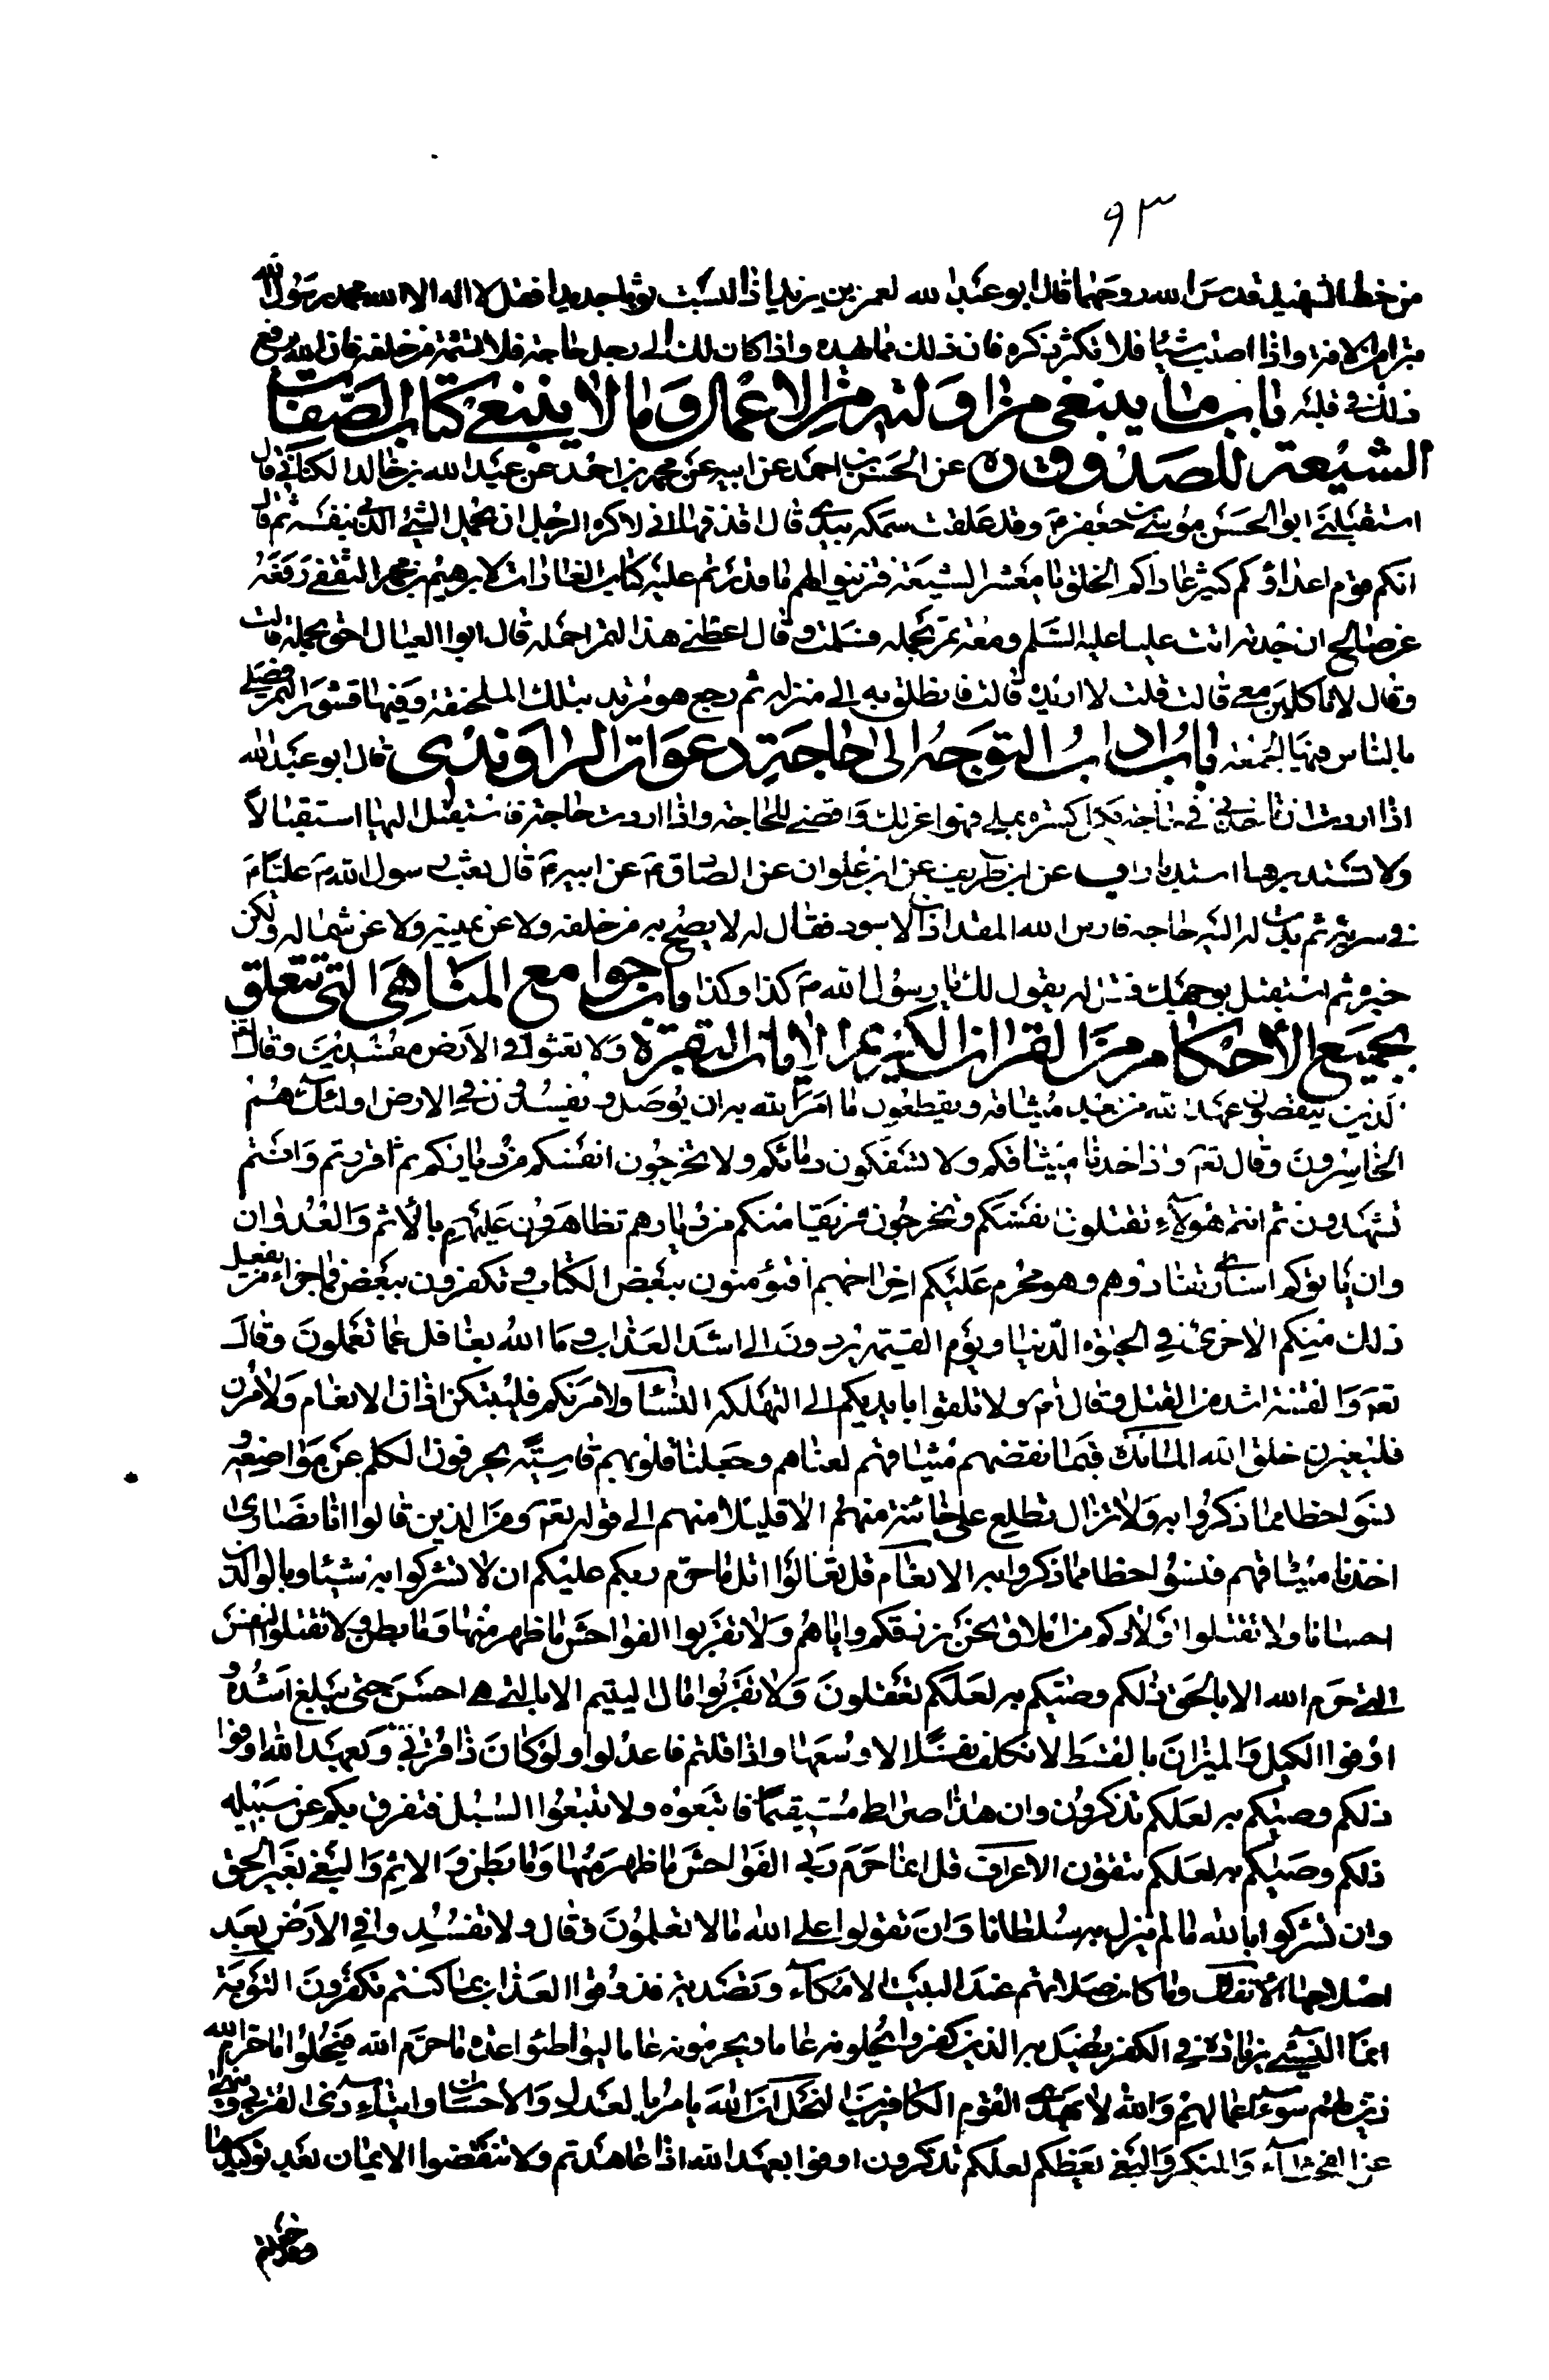 ٩٣
من خط الشهيد قدس الله روحهما قال ابو عبد الله لعمر بن يزيد اذا لبست ثوبا جديدا فقل لا اله الا الله محمد رسول الله
تبرا من الافة واذا احببت شيئا فلا تكثر ذكره فان ذلك مما يهده واذا كان لك الى رجل حاجة فلا تشتمه من خلفه فان الله يوقع
ذلك في قلبه باب ما ينبغي مزاولته من الاعمال وما لا ينبغي كتاب الصفات
الشيعة للصدوق ره عن الحسن بن احمد عن ابيه عن محمد بن احمد عن عبد الله بن خالد الكناني قال
استقبلني ابو الحسن موسى بن جعفر م وقد علقت سمكة بيدي قال اقذفها اني لاكره الرجل ان يحمل الشيء الدني بنفسه ثم قال
انكم قوم اعداؤكم كثير عاداكم الخلق يا معشر الشيعة فتزينوا لهم ما قدرتم عليه كتاب الغارات لابرهيم بن محمد الثقفي رفعه
عن صالح ان جدته اتت عليا عليه السلم ومعه تمر يحمله فسلمت وقال اعطني هذا التمر احمله قال ابو العيال احق بحمله قالت
وقال لا تاكلين معي قالت قلت لا اريد قالت فانطلق به الى منزله ثم رجع هو مرتد بتلك الملحفة وفيها قشور التمر فصلى
بالناس فيها الجمعة باب اداب التوجه الى حاجة دعوات الراوندي قال ابو عبد الله
اذا اردت ان تاخذ في حاجة فكل كسرة بملح فهو اعز لك واقضى للحاجة واذا اردت حاجة فاستقبل اليها استقبالا
ولا تستدبرها استدبارا ب عن ابن طريف عن ابن علوان عن الصادق م عن ابيه م قال بعث رسول الله م عليا م
في سرية ثم بدت له اليه حاجة فارسل الله المقداد بن الاسود فقال له لا يصح به من خلفه ولا عن يمينه ولا عن شماله ولكن
جزه ثم استقبل بوجهك فقل له يقول لك يا رسول الله م كذا وكذا باب جوامع المناهي التي تتعلق
بجميع الاحكام من القران الكريم الايات البقرة ولا تعثوا في الارض مفسدين وقال تع
الذين ينقضون عهد الله من بعد ميثاقه ويقطعون ما امر الله به ان يوصل ويفسدون في الارض اولئك هم
الخاسرون وقال تع واذ اخذنا ميثاقكم ولا تسفكون دمائكم ولا تخرجون انفسكم من دياركم ثم اقررتم وانتم
تشهدون ثم انتم هؤلاء تقتلون انفسكم وتخرجون فريقا منكم من ديارهم تظاهرون عليهم بالاثم والعدوان
وان ياتوكم اسارى تفادوهم وهو محرم عليكم اخراجهم افتؤمنون ببعض الكتاب وتكفرون ببعض فما جزاء من يفعل
ذلك منكم الا خزي في الحيوة الدنيا ويوم القيمة يردون الى اشد العذاب وما الله بغافل عما تعملون وقال
تع والفتنة اشد من القتل وقال تع ولا تلقوا بايديكم الى التهلكة النساء ولامرنهم فليبتكن اذان الانعام ولامرنهم
فليغيرن خلق الله المائدة فبما نقضهم ميثاقهم لعناهم وجعلنا قلوبهم قاسية يحرفون الكلم عن مواضعه و
نسوا حظا مما ذكروا به ولا تزال تطلع على خائنة منهم الا قليلا منهم الى قوله تع ومن الذين قالوا انا نصارى
اخذنا ميثاقهم فنسوا حظا مما ذكروا به الانعام قل تعالوا اتل ما حرم ربكم عليكم ان لا تشركوا به شيئا وبالوالدين
احسانا ولا تقتلوا اولادكم من املاق نحن نرزقكم واياهم ولا تقربوا الفواحش ما ظهر منها وما بطن ولا تقتلوا النفس
التي حرم الله الا بالحق ذلكم وصيكم به لعلكم تعقلون ولا تقربوا مال اليتيم الا بالتي هي احسن حتى يبلغ اشده و
اوفوا الكيل والميزان بالقسط لا نكلف نفسا الا وسعها واذا قلتم فاعدلوا ولو كان ذا قربى وبعهد الله اوفوا
ذلكم وصيكم به لعلكم تذكرون وان هذا صراطي مستقيما فاتبعوه ولا تتبعوا السبل فتفرق بكم عن سبيله
ذلكم وصيكم به لعلكم تتقون الاعراف قل انما حرم ربي الفواحش ما ظهر منها وما بطن والاثم والبغي بغير الحق
وان تشركوا بالله ما لم ينزل به سلطانا وان تقولوا على الله ما لا تعلمون وقال ولا تفسدوا في الارض بعد
اصلاحها الانفال وما كان صلاتهم عند البيت الا مكاء وتصدية فذوقوا العذاب بما كنتم تكفرون التوبة
انما النسيء زيادة في الكفر يضل به الذين كفروا يحلونه عاما ويحرمونه عاما ليواطئوا عدة ما حرم الله فيحلوا ما حرم الله
زين لهم سوء اعمالهم والله لا يهدي القوم الكافرين النحل ان الله يامر بالعدل والاحسان وايتاء ذي القربى وينهى
عن الفحشاء والمنكر والبغي يعظكم لعلكم تذكرون اوفوا بعهد الله اذا عاهدتم ولا تنقضوا الايمان بعد توكيدها
وقد جعلتم